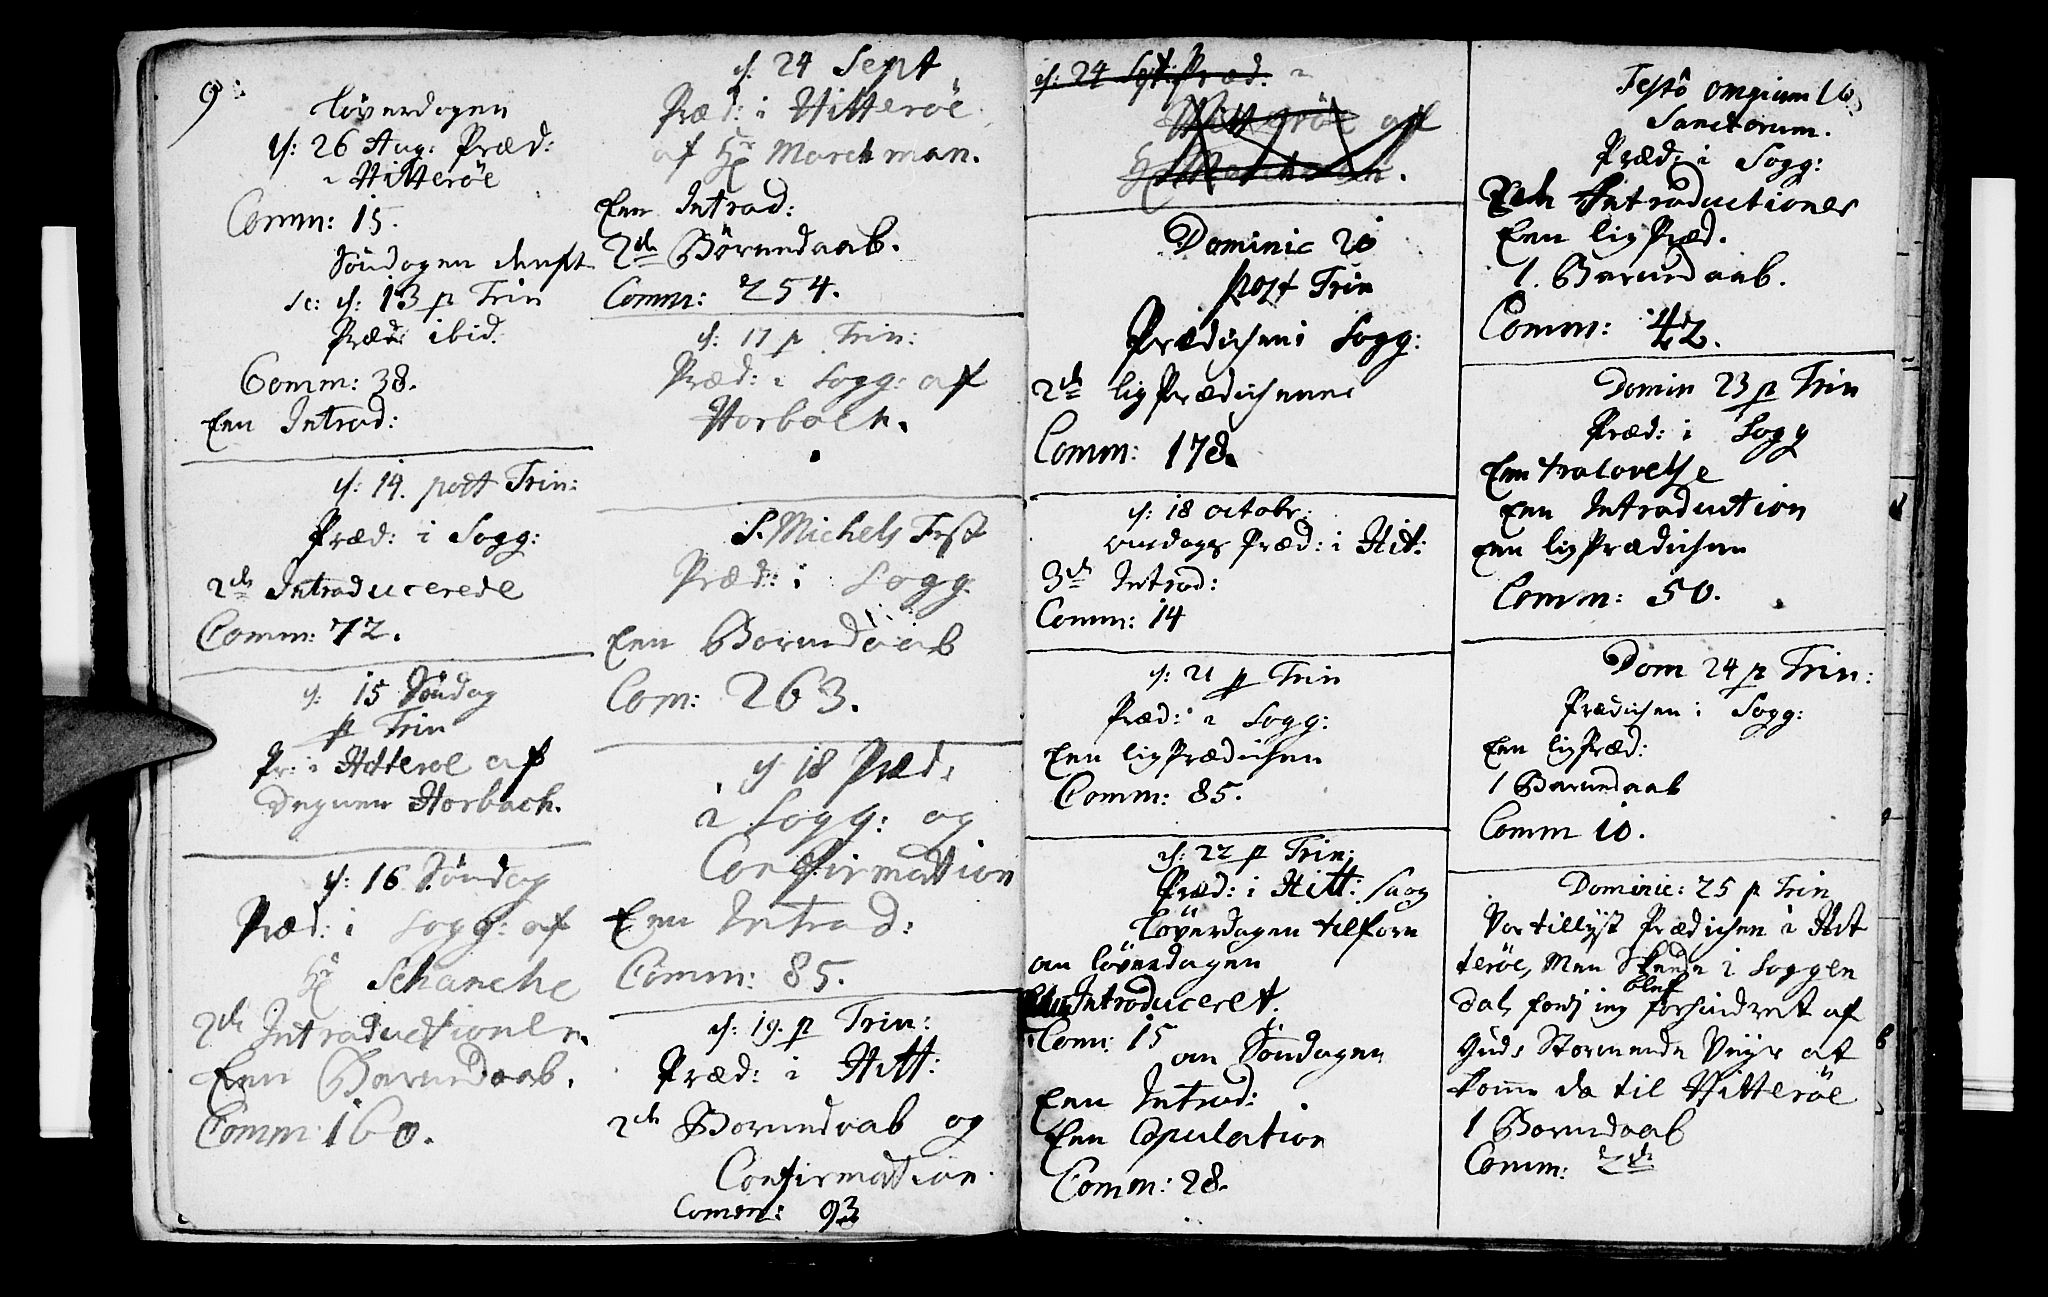 9
Löverdagen
d: 26 Aug: Præd:
i Hitteröe
Comm: 15.
Söndagen
sc: d: 13 p Trin
Præd: ibid.
Comm: 38.
Een Introd:
d: 14. post Trin:
Præd: i Sogg:
2de Introducerede
Comm: 72.
d: 15 Söndag
p Trin
Pr: i Hitteroe af
Degnen Horbach.
d: 16 Söndag
Præd: i Sogg: af
Hr Schanche
2de Introductioner.
Een Barnedaab.
Comm: 160.
d: 24 Sept
Præd: i Hitteröe
af Hr Marchman.
Een Introd:
2de Börnedaab.
Comm: 254.
d: 17 p Trin:
Præd: i Sogg: af
Horbach.
S. Michels Fest
Præd: i Sogg.
Een Barnedaab
Com: 263.
d 18 Præd:
i Sogg: og
Confirmation
Een Introd:
Comm: 85.
d: 19. p Trin:
Præd: i Hitt:
2de Barnedaab og
Confirmation.
Comm: 93
d: 24 Sept: Præd: i
Hitteröe af
Hr Marchman.
Dominic 20
post Trin
Prædichen i Sogg:
2de ligPrædichener
Comm: 178.
d: 18 octobr:
onsdags Præd: i Hit:
3de Introd:
Comm: 14
d: 21 p Trin
Præd: i Sogg:
Een ligPrædichen
Comm: 85.
d: 22 p Trin:
Præd: i Hitt: saog
Löverdagen tilforn
om löverdagen
Introduceret.
Comm: 15
om Söndagen
Een Introd:
Een Copulation
Comm: 28.
Festo omnium 10
Sanctorum.
Præd: i Sogg:
2de Introductioner
Een ligPræd.
1. Barnedaab.
Comm: 42.
Domin 23 p Trin
Præd: i Sogg
Een trolovelse
Een Introduction
Een ligPrædichen
Comm: 50.
Dom 24 p Trin:
Prædichen i Sogg:
Een ligPræd:
1 Barnedaab
Comm 10.
Dominic: 25 p Trin
Var tillyst Prædichen i Hit
teröe, Men Skeede i Soggen
dal, fordj ieg blef forhindret af
Guds Stormende Vejr at
komme da til Hitteröe
1 Barnedaab
Comm: 2de